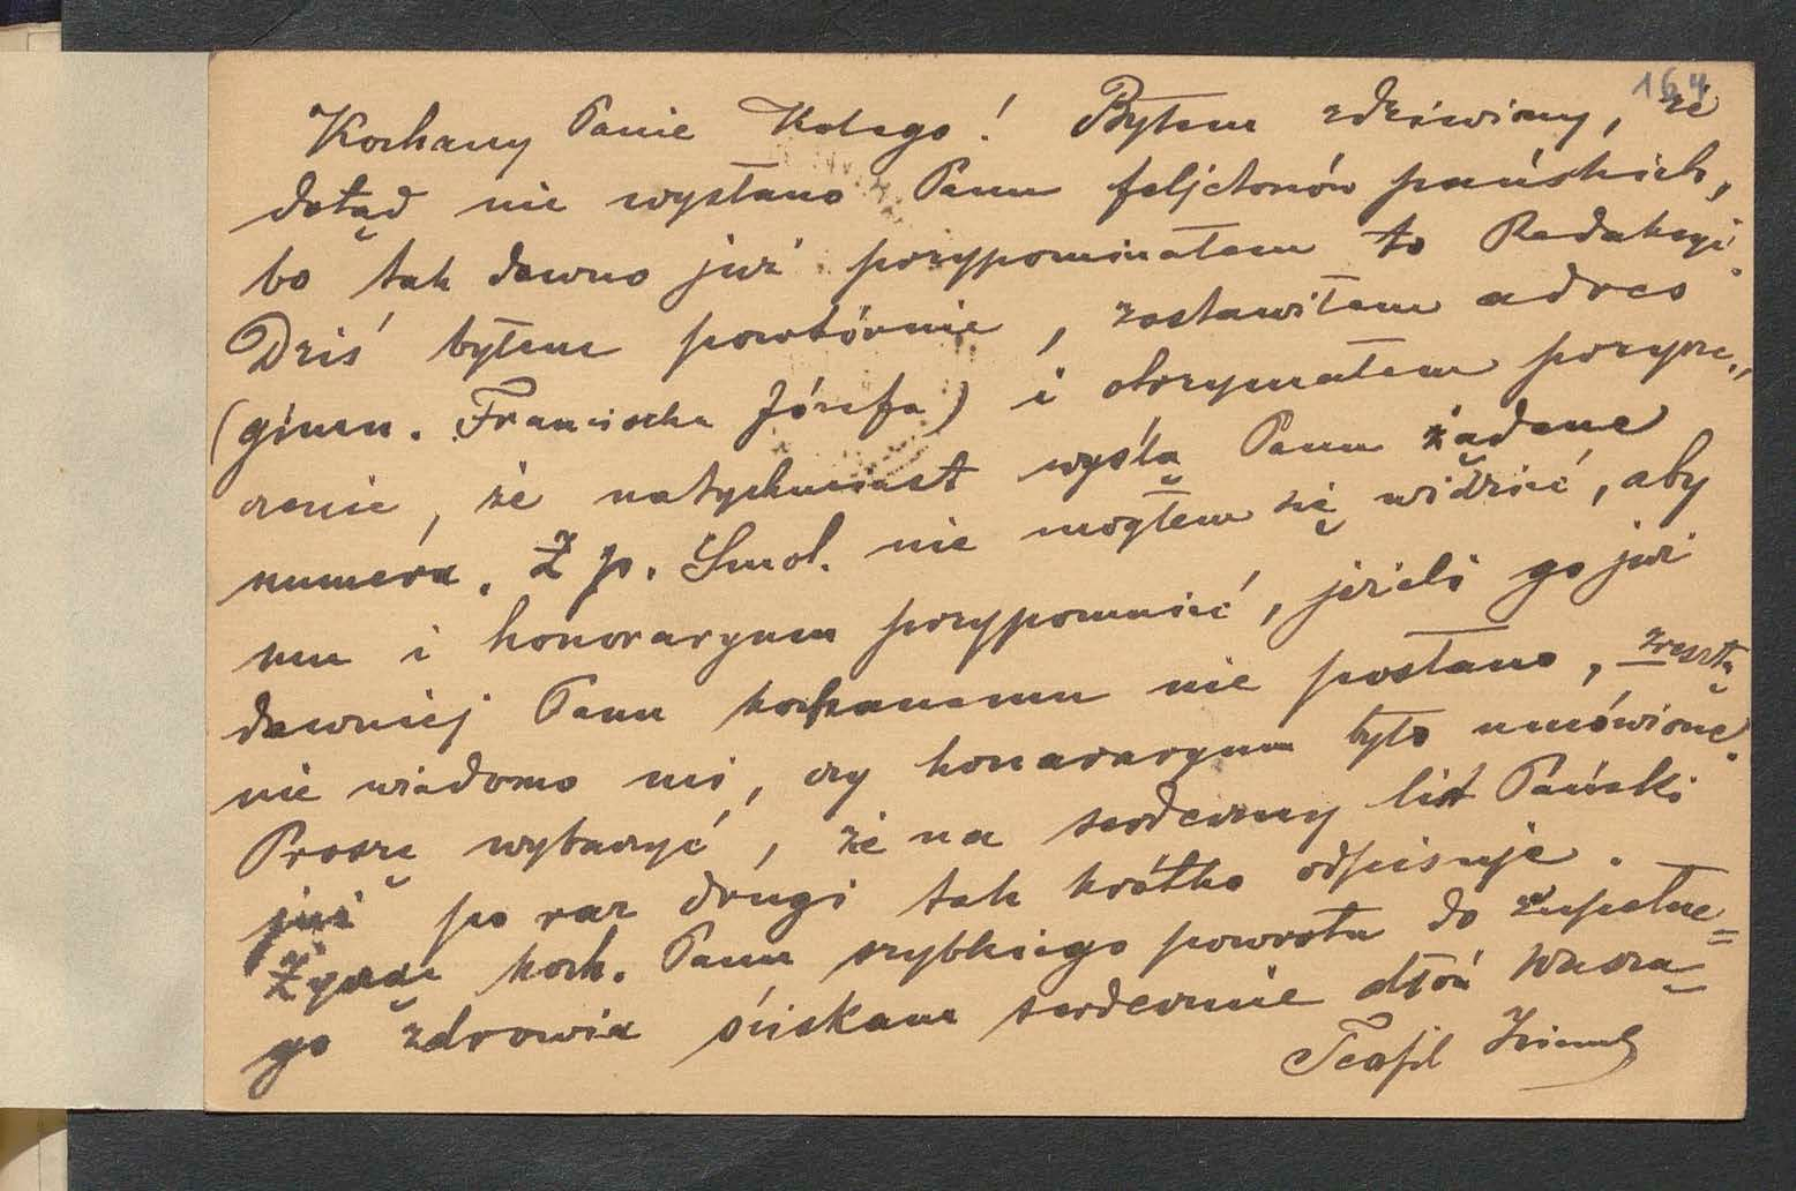 164
Kochany Panie Kolego! Byłem zdziwiony, że
dotąd nie wysłano Panu feljetonów pańskich,
bo tak dawno już przypominałem to Redakcyi.
Dziś byłem powtórnie, zostawiłem adres
(gimn. Franciszka Józefa) i otrzymałem przyrze-
czenie, że natychmiast wyślą Panu żądane
numera. Z p. Smol. nie mogłem się widzieć, aby
mu i honoraryum przypomnieć, jeżeli go już
dawniej Panu kochanemu nie posłano, zresztą
nie wiadomo mi, czy honoraryum było umówione.
Proszę wybaczyć, że na serdeczny list Pański
już po raz drugi tak krótko odpisuję.
Życząc koch. Panu szybkiego powrotu do zupełne=
go zdrowia ściskam serdecznie dłoń Wasza
Teofil